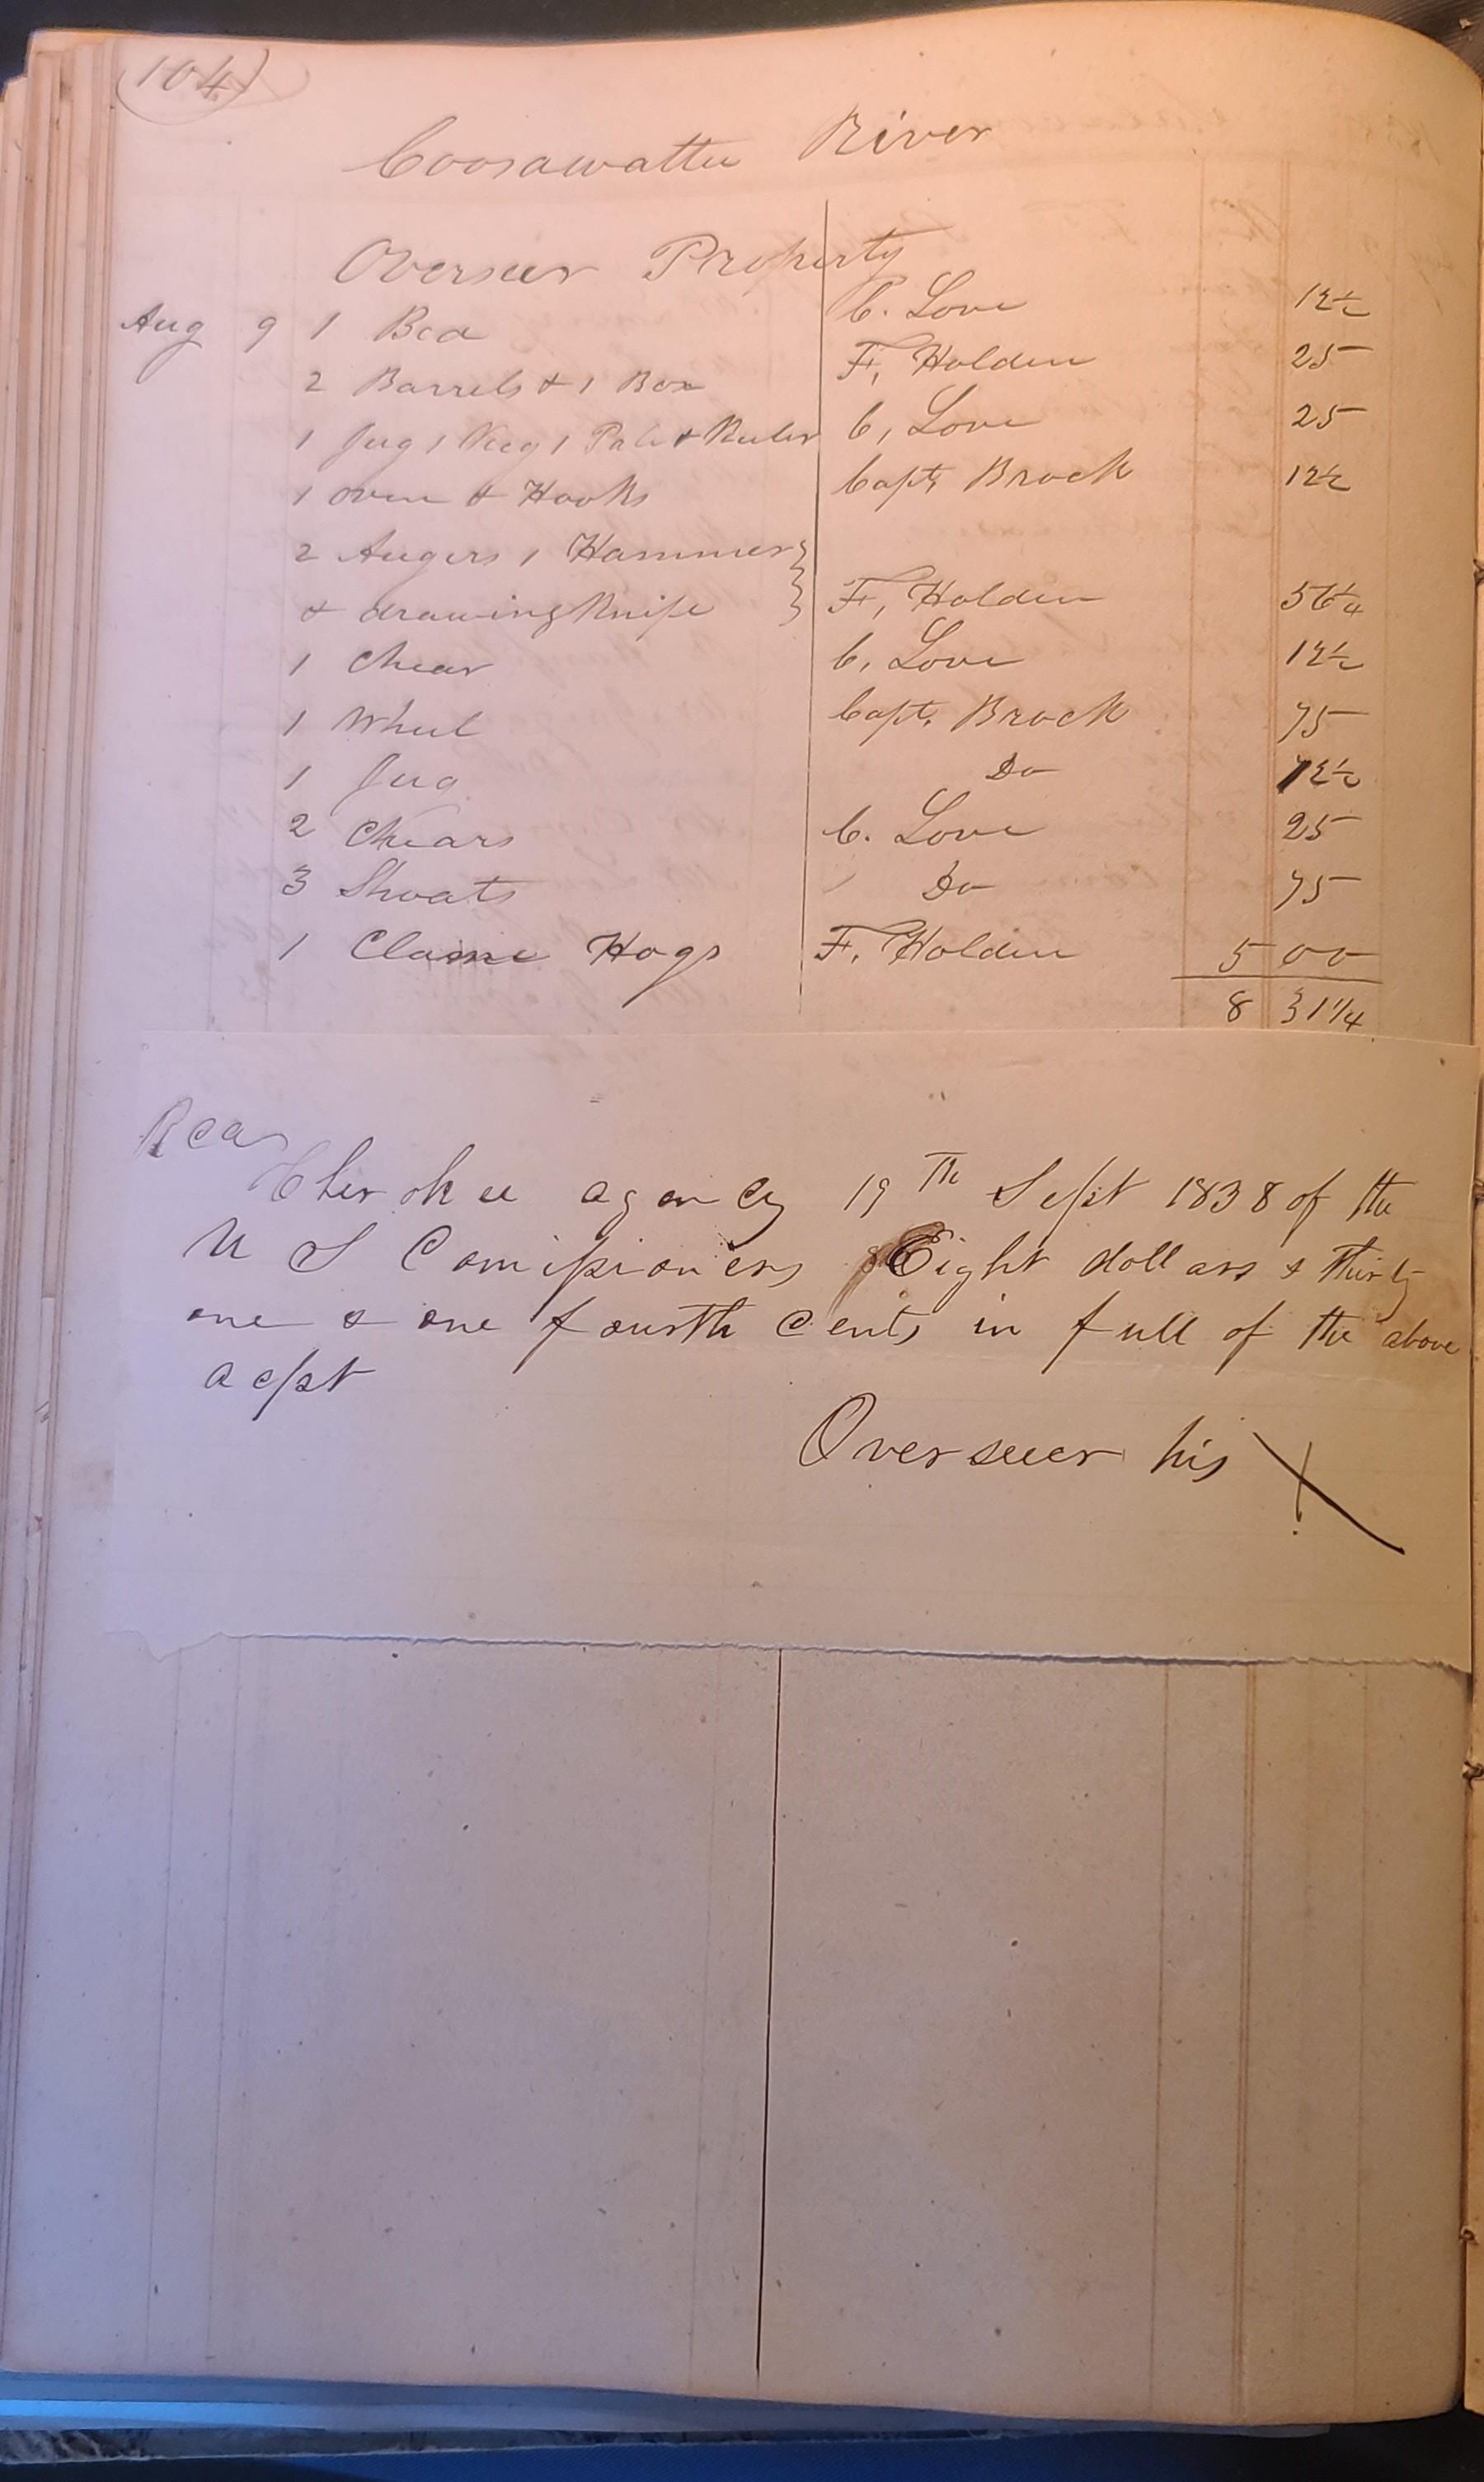 104
Coosawattee River
Overseer Property
Aug 9 1 Bed C. Love 12½
2 Barrels & 1 Box F. Holden 25
1 Jug 1 Keg 1 Pale & C. Love 25
1 oven & Hooks Capt. Brock 12½
2 Augers 1 Hammer
& drawing Knife F. Holden 56¼
1 Chear C. Love 12½
1 Wheel Capt. Brock 75
1 Jug Do 12½
2 Chears C. Love 25
3 Shoats Do 75
1 Clame Hogs F. Holden 5 00
8 31¼
Recd
Cherokee agency 19th Sept 1838 of the
U S Comissioners Eight dollars & thirty
one & one fourth Cents in full of the above
acpt
Overseer his X